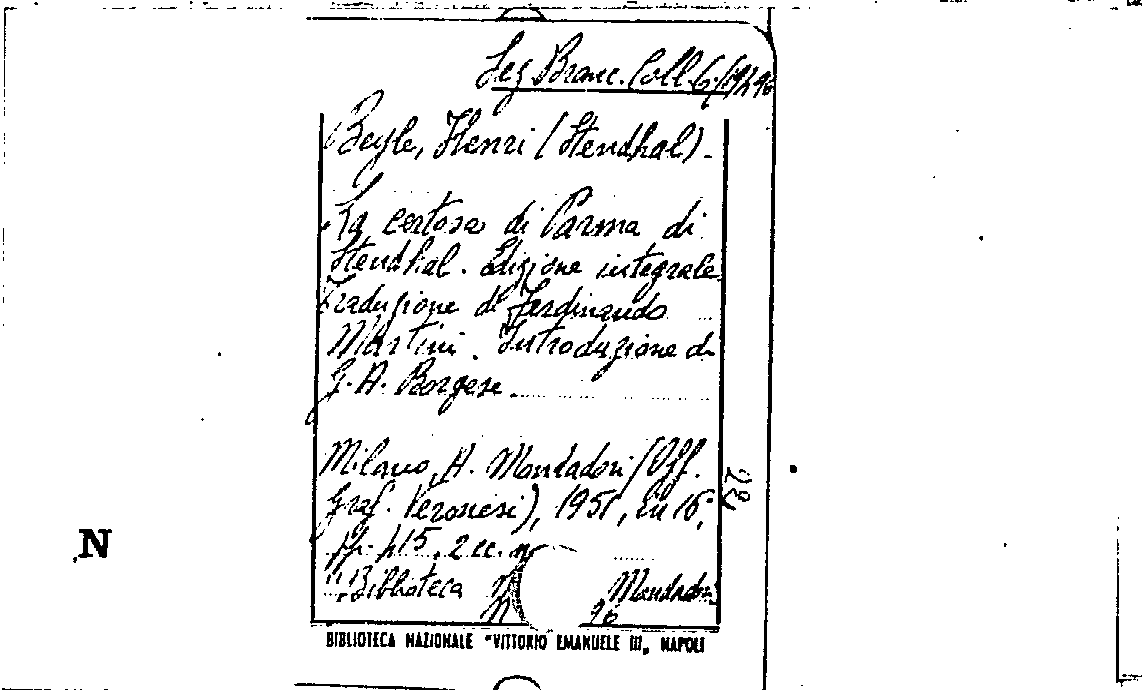 Sez Branc. Coll. G.
Beyle, Henri (Stendhal).
La certosa di Parma di
Stendhal. Edizione integrale
Traduzione di Ferdinando
Martini. Introduzione di
G. A. Borgese
Milano, A. Mondadori (Off.
Graf. Veronesi), 1951, in 16°,
pp. 415, 2 cc. n
Biblioteca Mondadori
N
BIBLIOTECA NAZIONALE "VITTORIO EMANUELE III„ NAPOLI